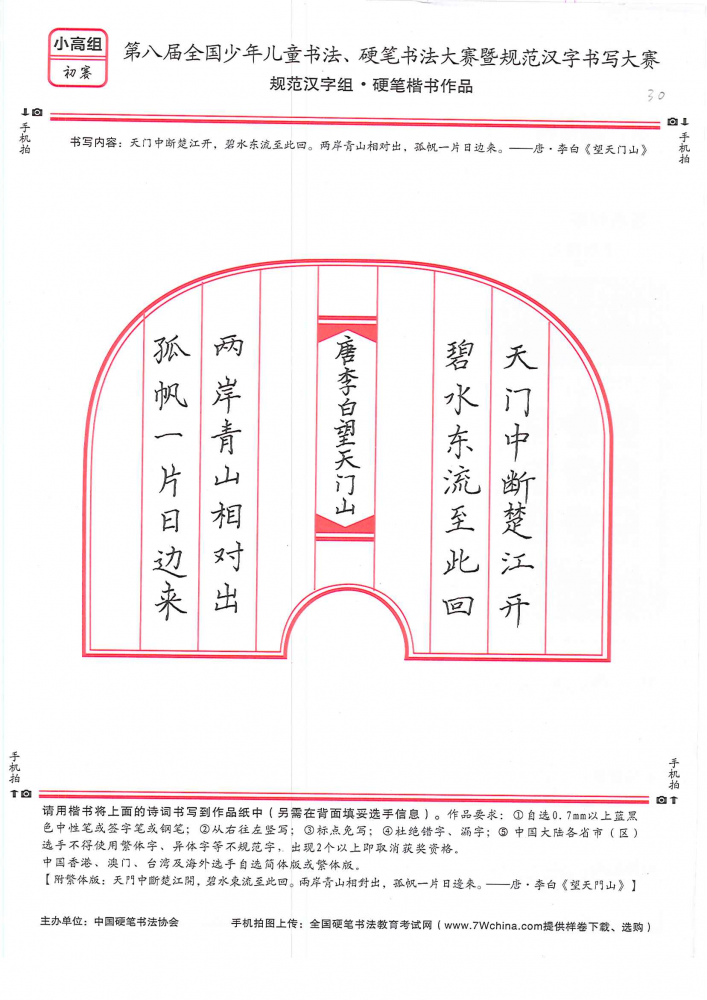 小高组
初赛
第八届全国少年儿童书法、硬笔书法大赛暨规范汉字书写大赛
规范汉字组·硬笔楷书作品
30
手机拍
手机拍
书写内容：天门中断楚江开，碧水东流至此回。两岸青山相对出，孤帆一片日边来。——唐·李白《望天门山》
天门中断楚江开
碧水东流至此回
唐李白望天门山
两岸青山相对出
孤帆一片日边来
手机拍
手机拍
请用楷书将上面的诗词书写到作品纸中（另需在背面填妥选手信息）。作品要求：①自选0.7mm以上蓝黑
色中性笔或签字笔或钢笔；②从右往左竖写；③标点免写；④杜绝错字、漏字；⑤中国大陆各省市（区）
选手不得使用繁体字、异体字等不规范字，出现2个以上即取消获奖资格。
中国香港、澳门、台湾及海外选手自选简体版或繁体版。
【附繁体版：天門中斷楚江開，碧水東流至此回。兩岸青山相對出，孤帆一片日邊來。——唐·李白《望天門山》】
主办单位：中国硬笔书法协会
手机拍图上传：全国硬笔书法教育考试网（www.7Wchina.com提供样卷下载、选购）